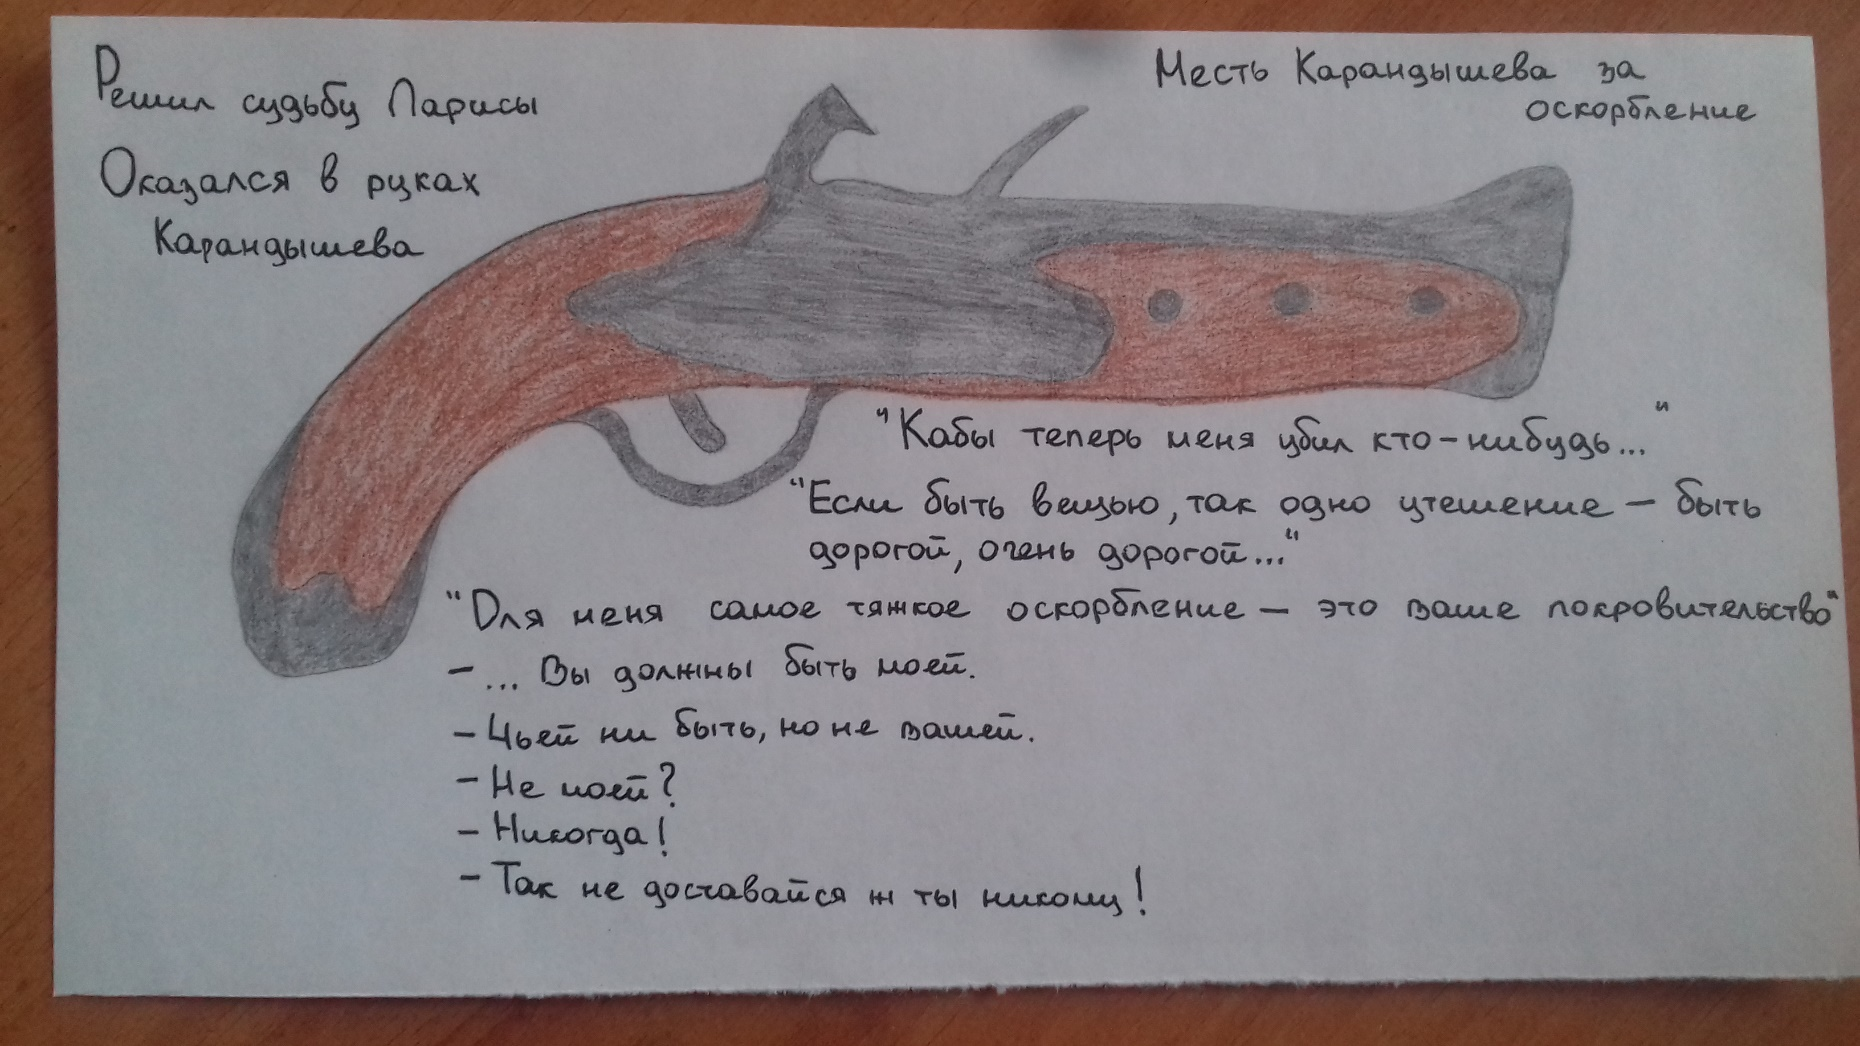 Решил судьбу Ларисы
Оказался в руках
Карандышева
Месть Карандышева за
оскорбление
"Кабы теперь меня убил кто-нибудь..."
"Если быть вещью, так одно утешение – быть
дорогой, очень дорогой..."
"Для меня самое тяжкое оскорбление – это ваше покровительство"
- ... Вы должны быть моей.
- Чьей ни быть, но не вашей.
- Не моей?
- Никогда!
- Так не доставайся ж ты никому!